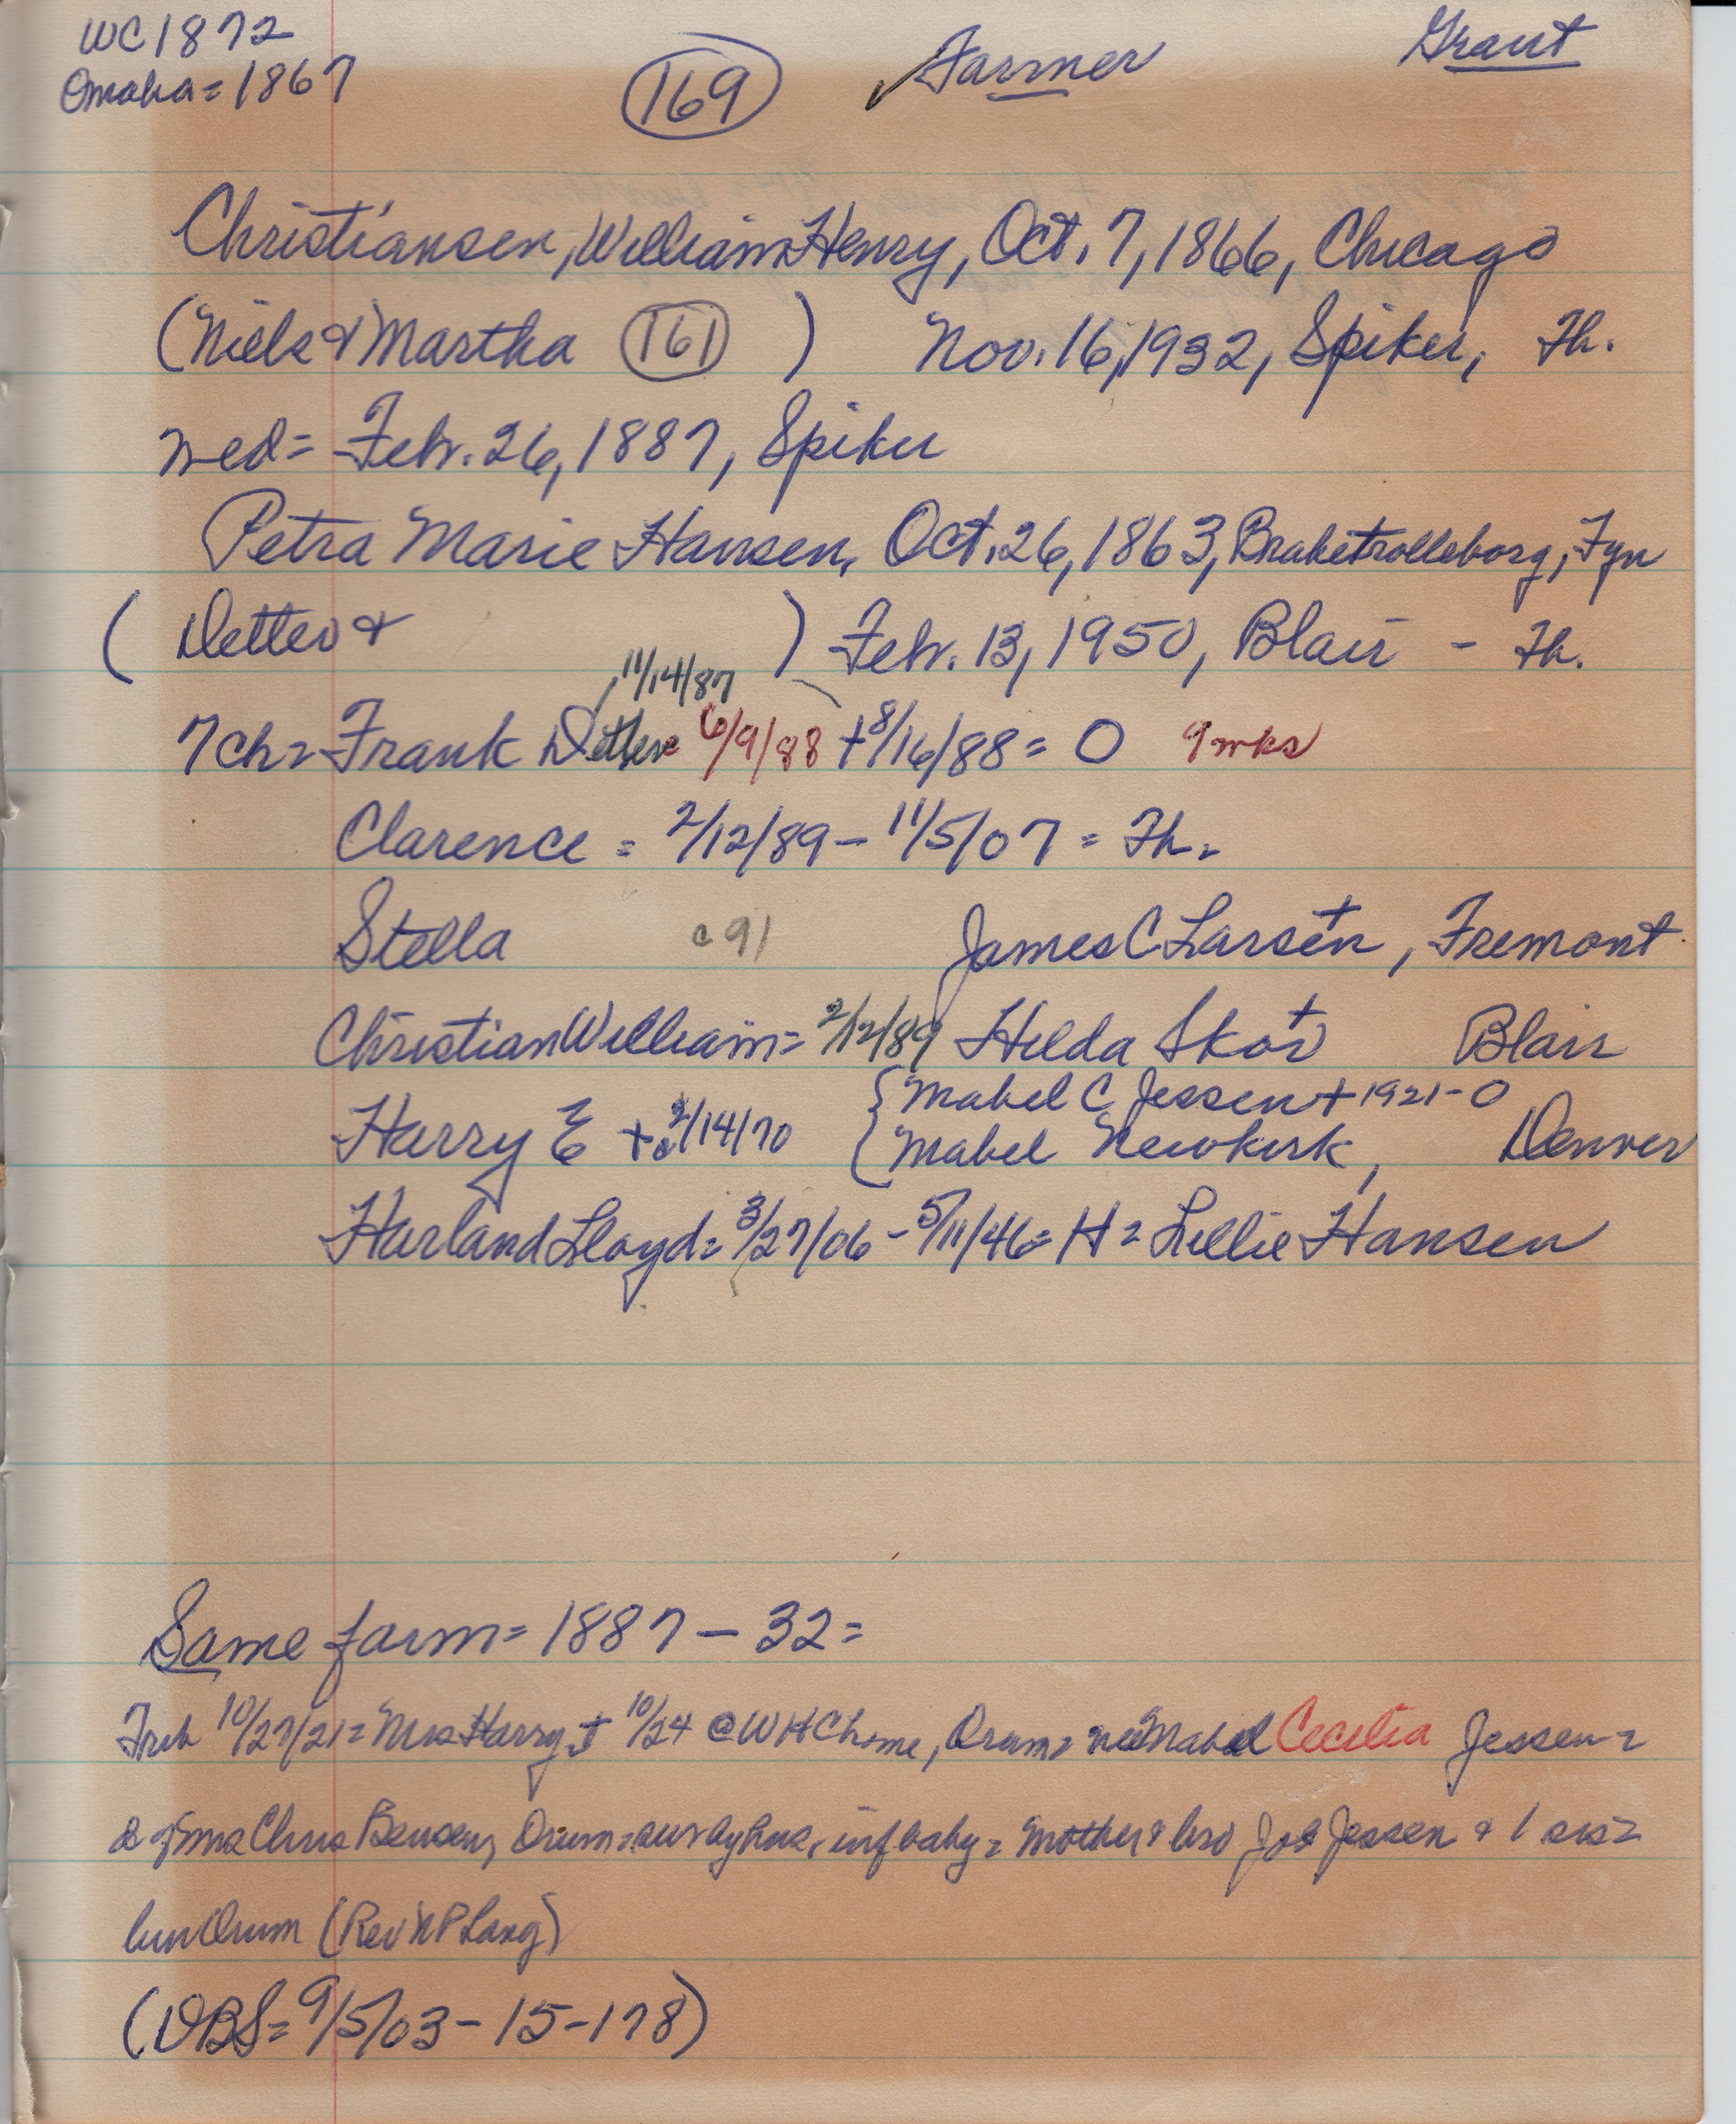 WC 1872
Omaha = 1867
169
✓ Farmer
Grant
Christiansen, William Henry, Oct. 7, 1866, Chicago
(Niels & Martha 161 ) Nov. 16, 1932, Spiker, Fh.
wed = Febr. 26, 1887, Spiker
Petra Marie Hansen, Oct. 26, 1863, Braketrolleborg, Fyn
( Detlev & ) Febr. 13, 1950, Blair - Fh.
11/14/87
7 ch = Frank Detlev 6/9/88 + 8/16/88 = O 9 wks
Clarence = 2/12/89 - 11/5/07 = Fh.
Stella c 91 James C Larsen +, Fremont
Christian William = 2/12/89 Hilda Skov + Blair
Harry E + 2/14/70 { Mabel C Jessen + 1921 - O
Mabel Newkirk, Denver
Harland Lloyd = 3/27/06 - 5/11/46 = H = Lillie Hansen
Same farm = 1887 - 32 =
10/27/21 = Mrs Harry + 10/24 @ WHC home, Orum = nee Mabel Cecilia Jessen =
d of Chris Bensen, Orum = sur by hus, inf baby = mother & bro Joe Jessen & 1 sis =
bur Orum (Rev NP Lang)
(DBS = 9/5/03 - 15 - 178)